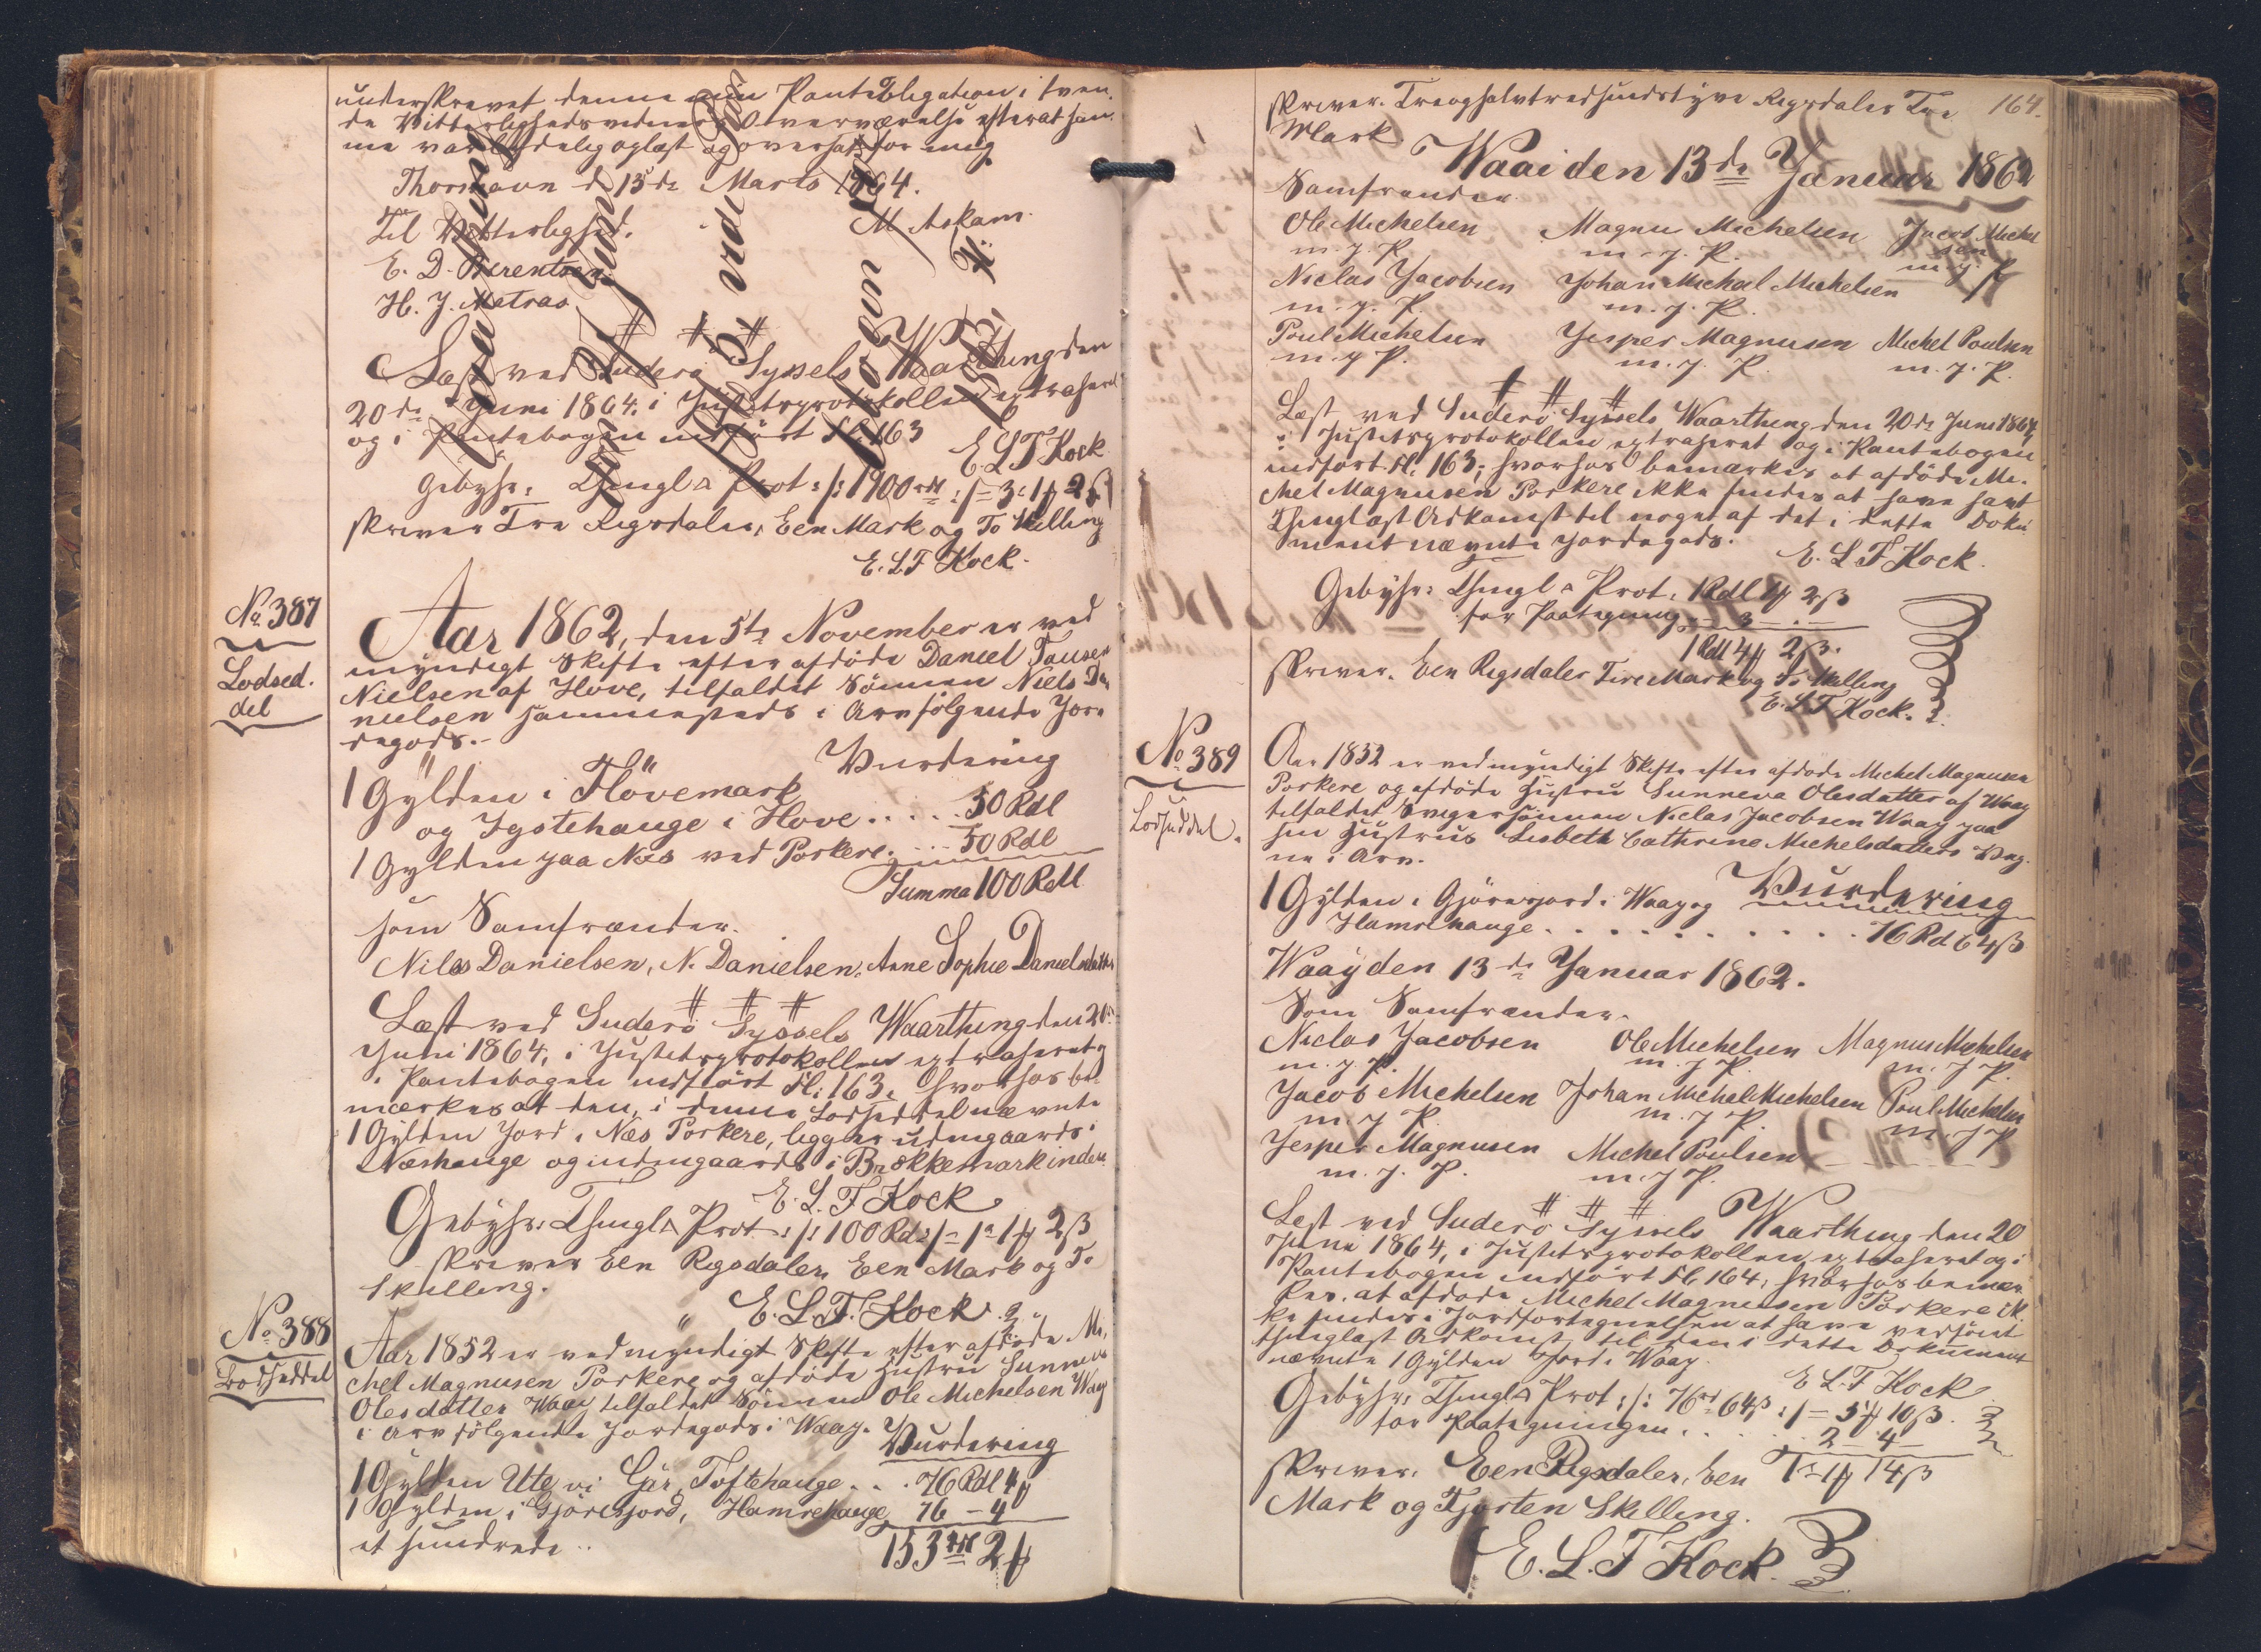 underskrevet denne min Panteobligation i tven-
de Vitterlighedsvidners Overværelse efterat sam-
me var tydelig oplæst og oversat for mig
Thorshavn d 15de Marts 1864.
Til Vitterlighed. M. Askam.
E. D. Berentsen
H. J. Matras
Læst ved Suderø Syssels Waarthing den
20de Juni 1864, i Justitsprotokollen extraheret
og i Pantebogen indført Fl. 163
E. L. F. Kock
Gebyhr: Thingl & Prot: /: 1900 rdl :/ = 3: 1 ₰ 2 ß
skriver Tre Rigsdaler, Een Mark og To Skilling
E. L. F. Kock.
No. 387
Lodsed-
del
Aar 1862, den 5te November er ved
myndigt Skifte efter afdöde Daniel Tausen
Nielsen af Hove, tilfaldet Sönnen Niels Da
nielsen sammesteds i Arv følgende Jor-
degods.-
Vurdering
1 Gylden i Hövemark
og Tystehauge i Hove . . . . . 50 Rdl
1 Gylden paa Næs ved Porkere. . . . 50 Rdl
Summa 100 Rdl
som Samfrænder.
Niels Danielsen, N. Danielsen, Anne Sophie Danielsdatter
Læst ved Suderö Syssels Waarthing den 20de
Juni 1864, i Justitsprotokollen extraheret og
i Pantebogen indfört Fl: 163, hvorhos be-
mærkes at den, i denne Lodseddel nævnte
1 Gylden Jord i Næs Porkere, ligger udengaards i
Næshauge og indengaards i Brekkemark inden
E. L. F. Kock
Gebyhr: Thingl & Prot: /: 100 Rd :/ = 1 = 1 ₰ 2 ß
skriver Een Rigsdaler, Een Mark og To
Skilling.
E. L. F. Kock.
No. 388
Lodseddel
Aar 1852 er ved myndigt Skifte efter afdöde Mi-
chel Magnusen Porkere og afdöde Hustru Sunneva
Olesdatter Waay tilfaldet Sönnen Ole Michelsen Waay
i Arv fölgende Jordegods i Waay.
Vurdering
1 Gylden Ute vi Gar, Toftehauge . . . 76 Rdl 4 ₰
1 Gylden i Gjöresjord, Hamrehauge 76 - 4
et hundrede
153 rdl 2 ₰
164.
skriver. Treoghalvtredsindstyve Rigsdaler To
Mark
Waai den 13de Januar 1862
Samfrænder
Ole Michelsen Magnus Michelsen Jacob Michel
sen
m. f. P. m. f. P. m. f. P
Niclas Jacobsen Johan Michael Michelsen
m. f. P. m. f. P.
Poul Michelsen Jesper Magnusen Michel Poulsen
m f P. m. f. P. m. f. P.
Læst ved Suderö Syssels Waarthing den 20de Juni 1864,
i Justitsprotokollen extraheret og i Pantebogen
indfört Fl. 163; hvorhos bemærkes at afdöde Mi-
chel Magnusen Porkere ikke findes at have havt
Thinglæst Adkomst til noget af det i dette Doku
ment nævnte Jordegods.
E. L. F Kock.
Gebyhr: Thingl & Prot. 1 Rdl 1 ₰ 2 ß
for Paategning - 3 - . -
1 Rdl 4 ₰ 2 ß.
skriver. Een Rigsdaler Fire Mark og To Skilling
E. L. F. Kock.
No. 389
Lodseddel.
Aar 1852 er ved myndigt Skifte efter afdöde Michel Magnusen
Porkere og afdöde Hustru Sunneva Olesdatter af Waay
tilfaldet Svigersönnen Niclas Jacobsen Waay paa
sin Hustrus Lisbeth Cathrine Michelsdatters Veg-
ne i Arv.
Vurdering
1 Gylden i Gjöresjord i Waay og
Hamrehauge. . . . . . . . . . 76 Rd 64 ß
Waay den 13de Januar 1862.
Som Samfrænder.
Niclas Jacobsen Ole Michelsen Magnus Michelsen
m. f. P. m. f P. m. f P.
Jacob Michelsen Johan Michel Michelsen Poul Michelsen
m. f P. m. f P. m. f P.
Jesper Magnusen Michel Poulsen
m. f. P. m. f P.
Læst ved Suderö Syssels Waarthing den 20
Juni 1864, i Justitsprotokollen extraheret og i
Pantebogen indfört Fl. 164, hvorhos bemær
kes, at afdöde Michel Magnusen Porkere ik
ke findes i Jordfortegnelsen at have
thinglæst Adkomst til den i dette Dokument
nævnte 1 Gylden Jord i Waay.
E. L. F Kock
Gebyhr: Thingl & Prot: /: 76 rd 64 ß :/ = 5 ₰ 10 ß.
for Paategningen . . . . . 2 - 4 -
skriver. Een Rigsdaler, Een 1 = 1 ₰ 14 ß
Mark og Fjorten Skilling.
E. L. F Kock.